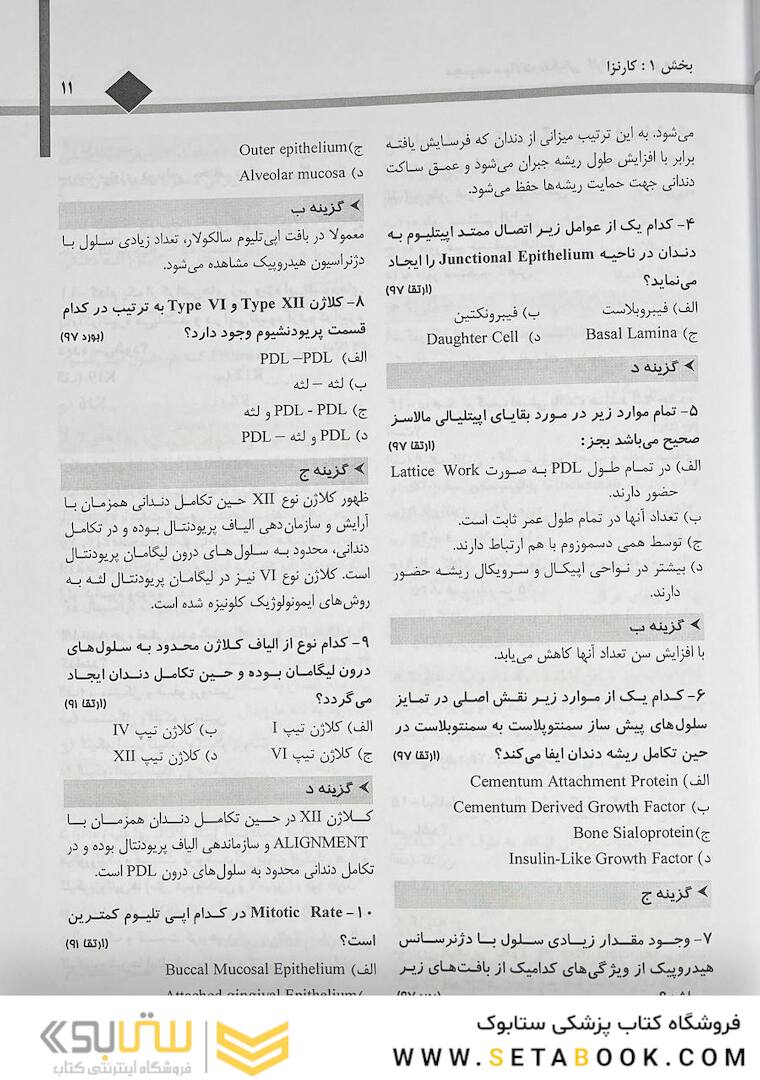 بخش ۱: کارنزا
۱۱
می‌شود. به این ترتیب میزانی از دندان که فرسایش یافته
برابر با افزایش طول ریشه جبران می‌شود و عمق ساکت
دندانی جهت حمایت ریشه‌ها حفظ می‌شود.
۴- کدام یک از عوامل زیر اتصال ممتد اپیتلیوم به
دندان در ناحیه Junctional Epithelium را ایجاد
می‌نماید؟ (ارتقا ۹۷)
الف) فیبروبلاست ب) فیبرونکتین
ج) Basal Lamina د) Daughter Cell
گزینه د
۵- تمام موارد زیر در مورد بقایای اپیتلیالی مالاسز
صحیح می‌باشد بجز: (ارتقا ۹۷)
الف) در تمام طول PDL به صورت Lattice Work
حضور دارند.
ب) تعداد آنها در تمام طول عمر ثابت است.
ج) توسط همی دسموزوم با هم ارتباط دارند.
د) بیشتر در نواحی اپیکال و سرویکال ریشه حضور
دارند.
گزینه ب
با افزایش سن تعداد آنها کاهش می‌یابد.
۶- کدام یک از موارد زیر نقش اصلی در تمایز
سلول‌های پیش ساز سمنتوپلاست به سمنتوبلاست در
حین تکامل ریشه دندان ایفا می‌کند؟ (ارتقا ۹۷)
الف) Cementum Attachment Protein
ب) Cementum Derived Growth Factor
ج) Bone Sialoprotein
د) Insulin-Like Growth Factor
گزینه ج
۷- وجود مقدار زیادی سلول با دژنرسانس
هیدروپیک از ویژگی‌های کدامیک از بافت‌های زیر
ج) Outer epithelium
د) Alveolar mucosa
گزینه ب
معمولا در بافت اپی‌تلیوم سالکولار، تعداد زیادی سلول با
دژنراسیون هیدروپیک مشاهده می‌شود.
۸- کلاژن Type XII و Type VI به ترتیب در کدام
قسمت پریودنشیوم وجود دارد؟ (بورد ۹۷)
الف) PDL –PDL
ب) لثه – لثه
ج) PDL - PDL و لثه
د) PDL و لثه – PDL
گزینه ج
ظهور کلاژن نوع XII حین تکامل دندانی همزمان با
آرایش و سازمان‌دهی الیاف پریودنتال بوده و در تکامل
دندانی، محدود به سلول‌های درون لیگامان پریودنتال
است. کلاژن نوع VI نیز در لیگامان پریودنتال لثه به
روش‌های ایمونولوژیک کلونیزه شده است.
۹- کدام نوع از الیاف کلاژن محدود به سلول‌های
درون لیگامان بوده و حین تکامل دندان ایجاد
می‌گردد؟ (ارتقا ۹۱)
الف) کلاژن تیپ I ب) کلاژن تیپ IV
ج) کلاژن تیپ VI د) کلاژن تیپ XII
گزینه د
کلاژن XII در حین تکامل دندان همزمان با
ALIGNMENT و سازماندهی الیاف پریودنتال بوده و در
تکامل دندانی محدود به سلول‌های درون PDL است.
۱۰- Mitotic Rate در کدام اپی تلیوم کمترین
است؟ (ارتقا ۹۱)
الف) Buccal Mucosal Epithelium
Attached gingival Epithelium
فروشگاه کتاب پزشکی ستابوک
WWW.SETABOOK.COM
ستابوک
فروشگاه اینترنتی کتاب